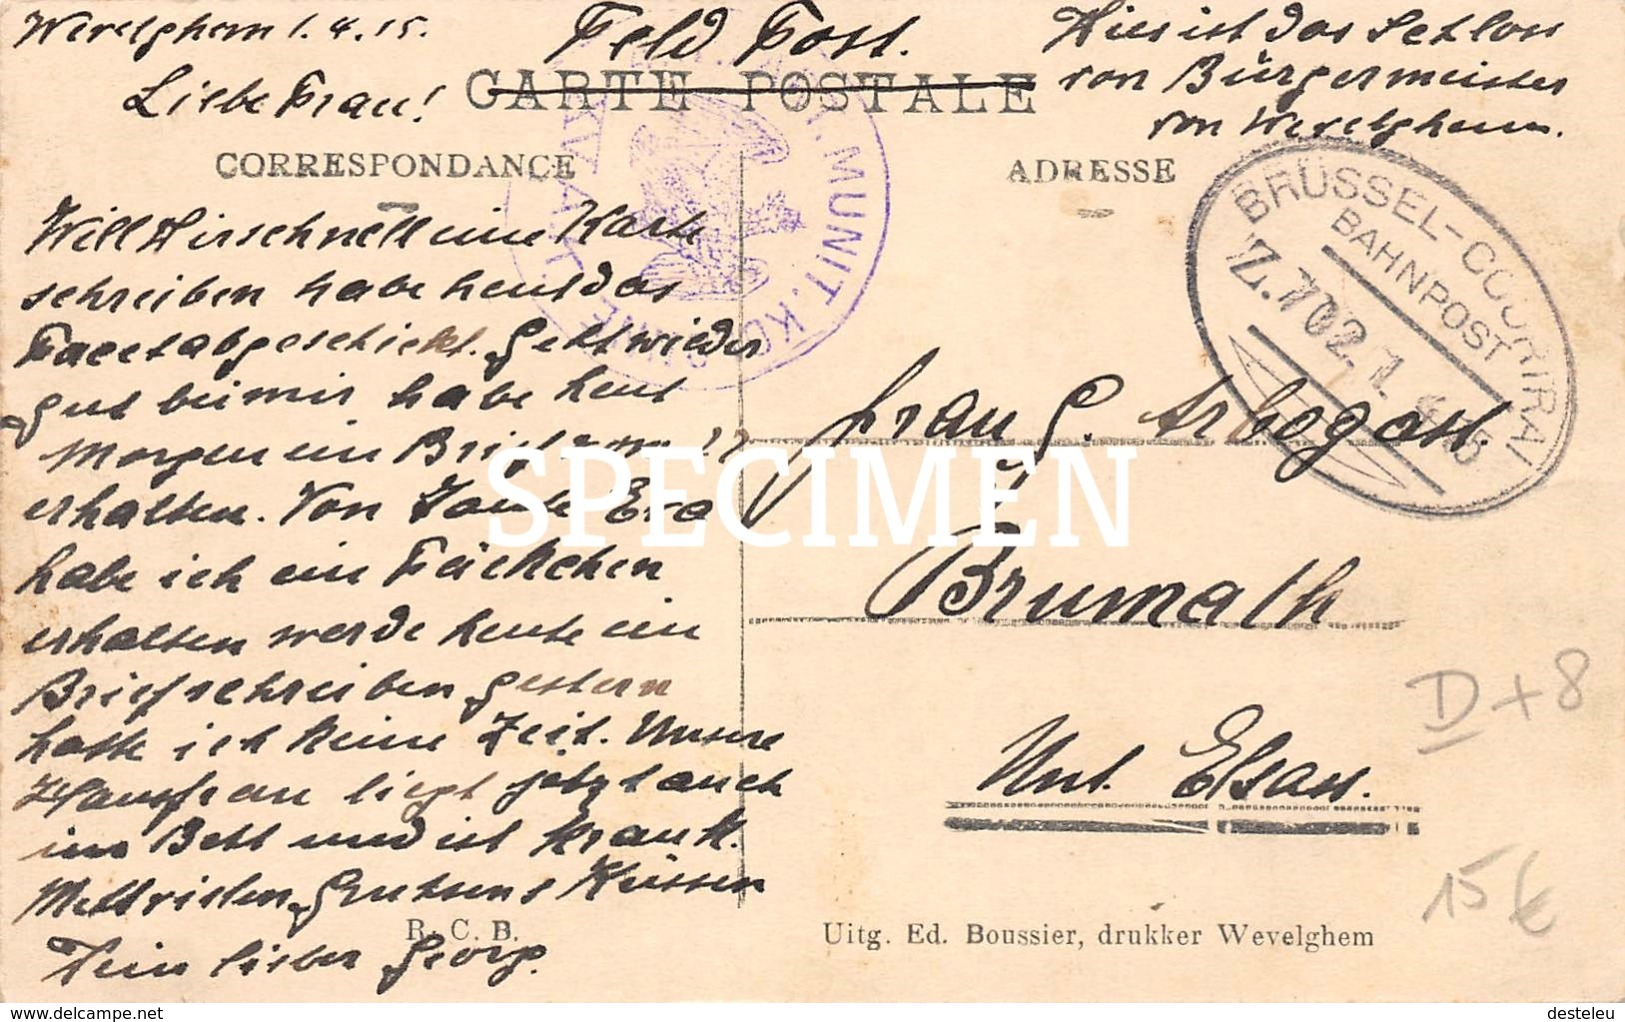 Wevelghem 1.4.15.
Feld Post.
Hier ist das Schloss
von Bürgermeister
von Wevelghem.
Liebe Frau!
CARTE POSTALE
CORRESPONDANCE
ADRESSE
MUNIT. KOL
BRÜSSEL-COURTRAI
BAHNPOST
Z.702. 1. 4 15
Will Dir schnell eine Karte
schreiben habe heut das
Pacet abgeschickt. Geht wieder
gut bei mir habe heut
morgen ein Brief
erhalten. Von Tante Eva
habe ich ein Päckchen
erhalten werde heute ein
Brief schreiben gestern
hatte ich keine Zeit. Unsere
Hausfrau liegt jetzt auch
im Bett und ist krank.
Mit vielen Grüssen & Küssen
Dein lieber Georg.
Frau G. Arbogast.
Brumath
Unt. Elsass.
SPECIMEN
D + 8
15 €
R. C. B.
Uitg. Ed. Boussier, drukker Wevelghem
www.delcampe.net
desteleu